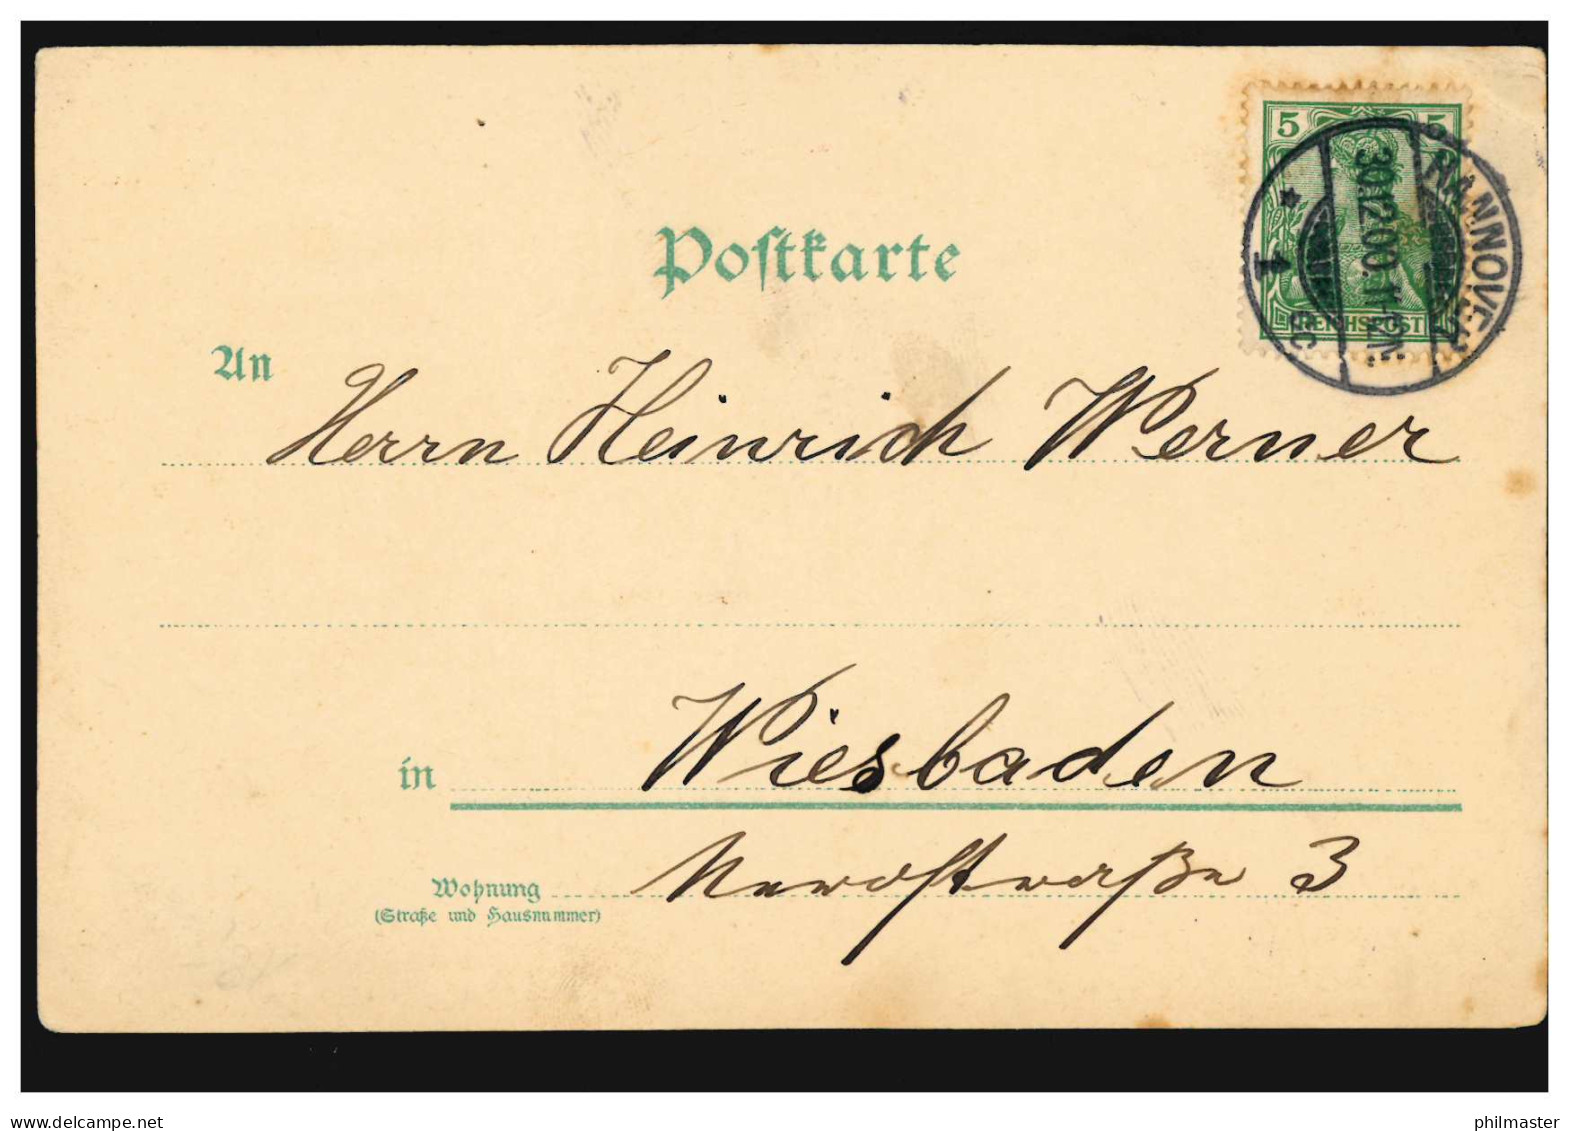 Postkarte
5 5
REICHSPOST
HANNOVER
30.12.00. 11-12N.
* 1 cc
An
Herrn Heinrich Werner
in
Wiesbaden
Wohnung
(Straße und Hausnummer)
3
delcampe.net
philmaster